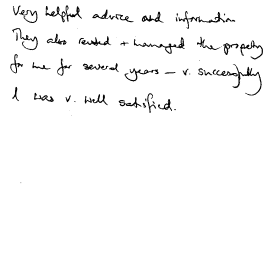 Very helpful advice and information
They also rented + managed the property
for me for several years – v. successfully
I was v. well satisfied.